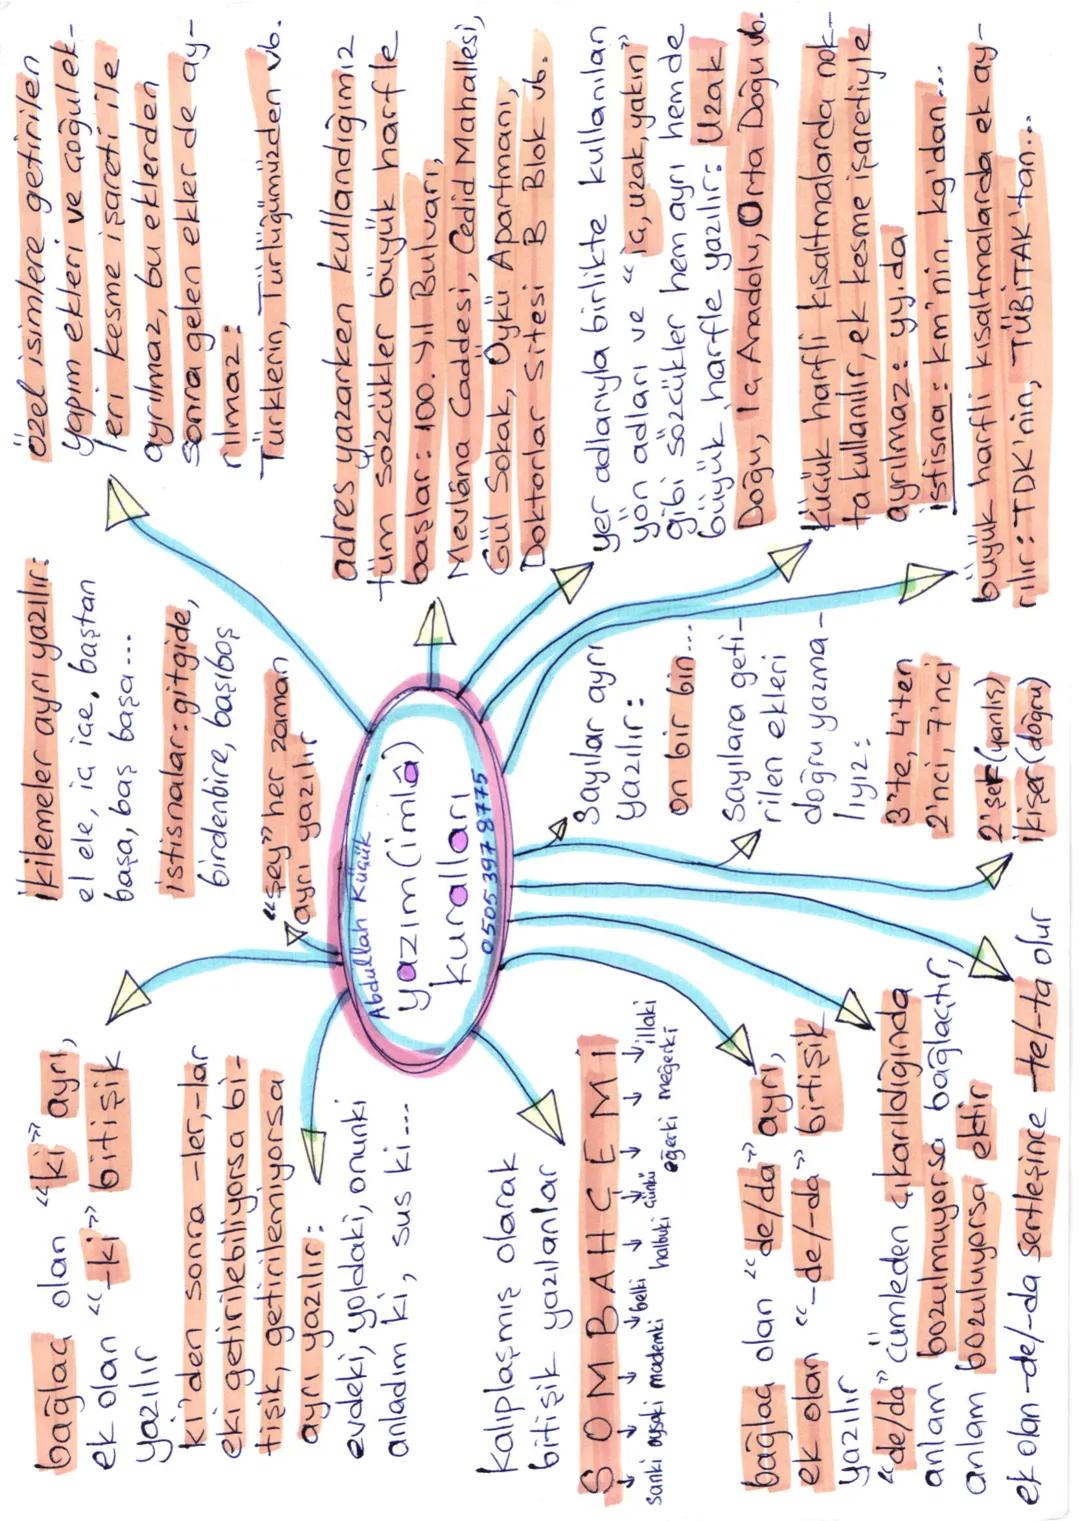 Abdullah Küçük
yazım(imlâ)
kuralları
0505 397 8775
bağlaç olan "ki" ayrı,
ek olan "-ki" bitişik
yazılır
ki'den sonra -ler,-lar
eki getirilebiliyorsa bi-
tişik, getirilemiyorsa
ayrı yazılır:
evdeki, yoldaki, onunki
anladım ki, sus ki...
Kalıplaşmış olarak
bitişik yazılanlar
S O M B A H Ç E M İ
sanki oysaki mademki belki halbuki çünkü eğerki meğerki illaki
bağlaç olan "de/da" ayrı,
ek olan "-de/-da" bitişik
yazılır
"de/da" cümleden çıkarıldığında
anlam bozulmuyorsa bağlaçtır,
anlam bozuluyorsa ektir
ek olan -de/-da sertleşince -te/-ta olur
İkilemeler ayrı yazılır:
el ele, iç içe, baştan
başa, baş başa...
istisnalar: gitgide,
birdenbire, başıboş
"şey" her zaman
ayrı yazılır
Sayılar ayrı
yazılır:
on bir bin...
Sayılara geti-
rilen ekleri
doğru yazma-
lıyız:
3'te, 4'ten
2'nci, 7'nci
2'şer (yanlış)
İkişer (doğru)
özel isimlere getirilen
yapım ekleri ve çoğul ek-
leri kesme işareti ile
ayrılmaz, bu eklerden
sonra gelen ekler de ay-
rılmaz:
Türklerin, Türlüğümüzden vb.
adres yazarken kullandığımız
tüm sözcükler büyük harfle
başlar: 100. Yıl Bulvarı,
Mevlâna Caddesi, Cedid Mahallesi,
Gül Sokak, Öykü Apartmanı,
Doktorlar Sitesi B Blok vb.
yer adlarıyla birlikte kullanılan
yön adları ve "iç, uzak, yakın"
gibi sözcükler hem ayrı hem de
büyük harfle yazılır: Uzak
Doğu, İç Anadolu, Orta Doğu vb.
küçük harfli kısaltmalarda nok-
ta kullanılır, ek kesme işaretiyle
ayrılmaz: yy.da
istisna: km'nin, kg'dan...
büyük harfli kısaltmalarda ek ay-
rılır: TDK'nin, TÜBİTAK'tan...